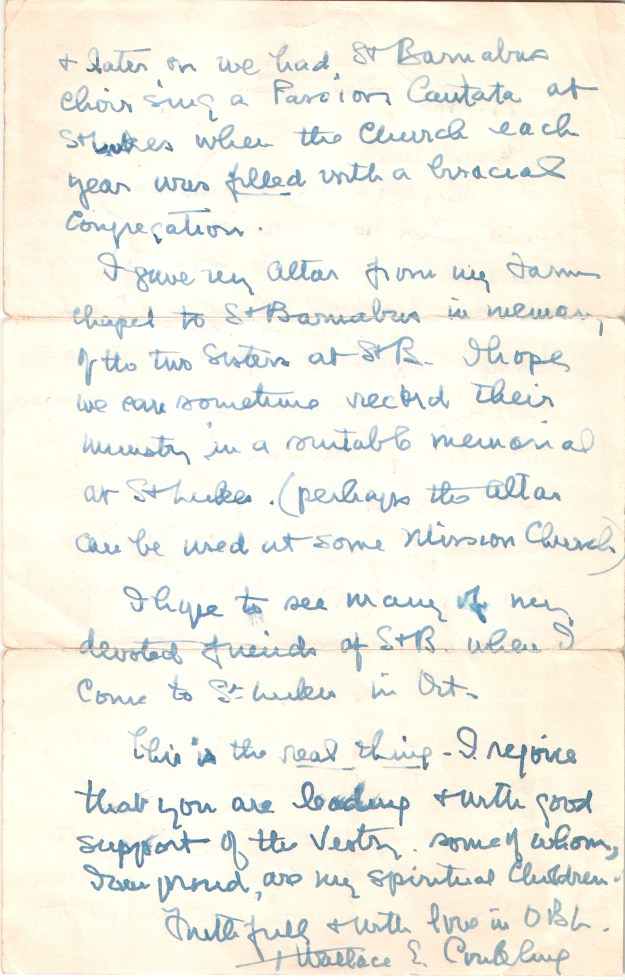 & later on we had St Barnabas
choir sing a Passion Cantata at
St Lukes when the Church each
year was filled with a biracial
congregation.
I gave my Altar from my farm
chapel to St Barnabas in memory
of the two Sisters at St B. I hope
we can sometime record their
ministry in a suitable memorial
at St Lukes. (perhaps the altar
can be used at some Mission Church)
I hope to see many of my
devoted friends of St B. when I
come to St Lukes in Oct.
This is the real thing - I rejoice
that you are leading & with good
support of the Vestry. some of whom,
I am proud, are my spiritual Children.
Faithfully & with love in O B L.
+ Wallace E. Conkling